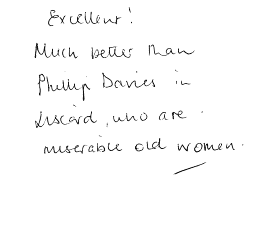 Excellent!
Much better than
Phillip Davies in
Liscard, who are
miserable old women.